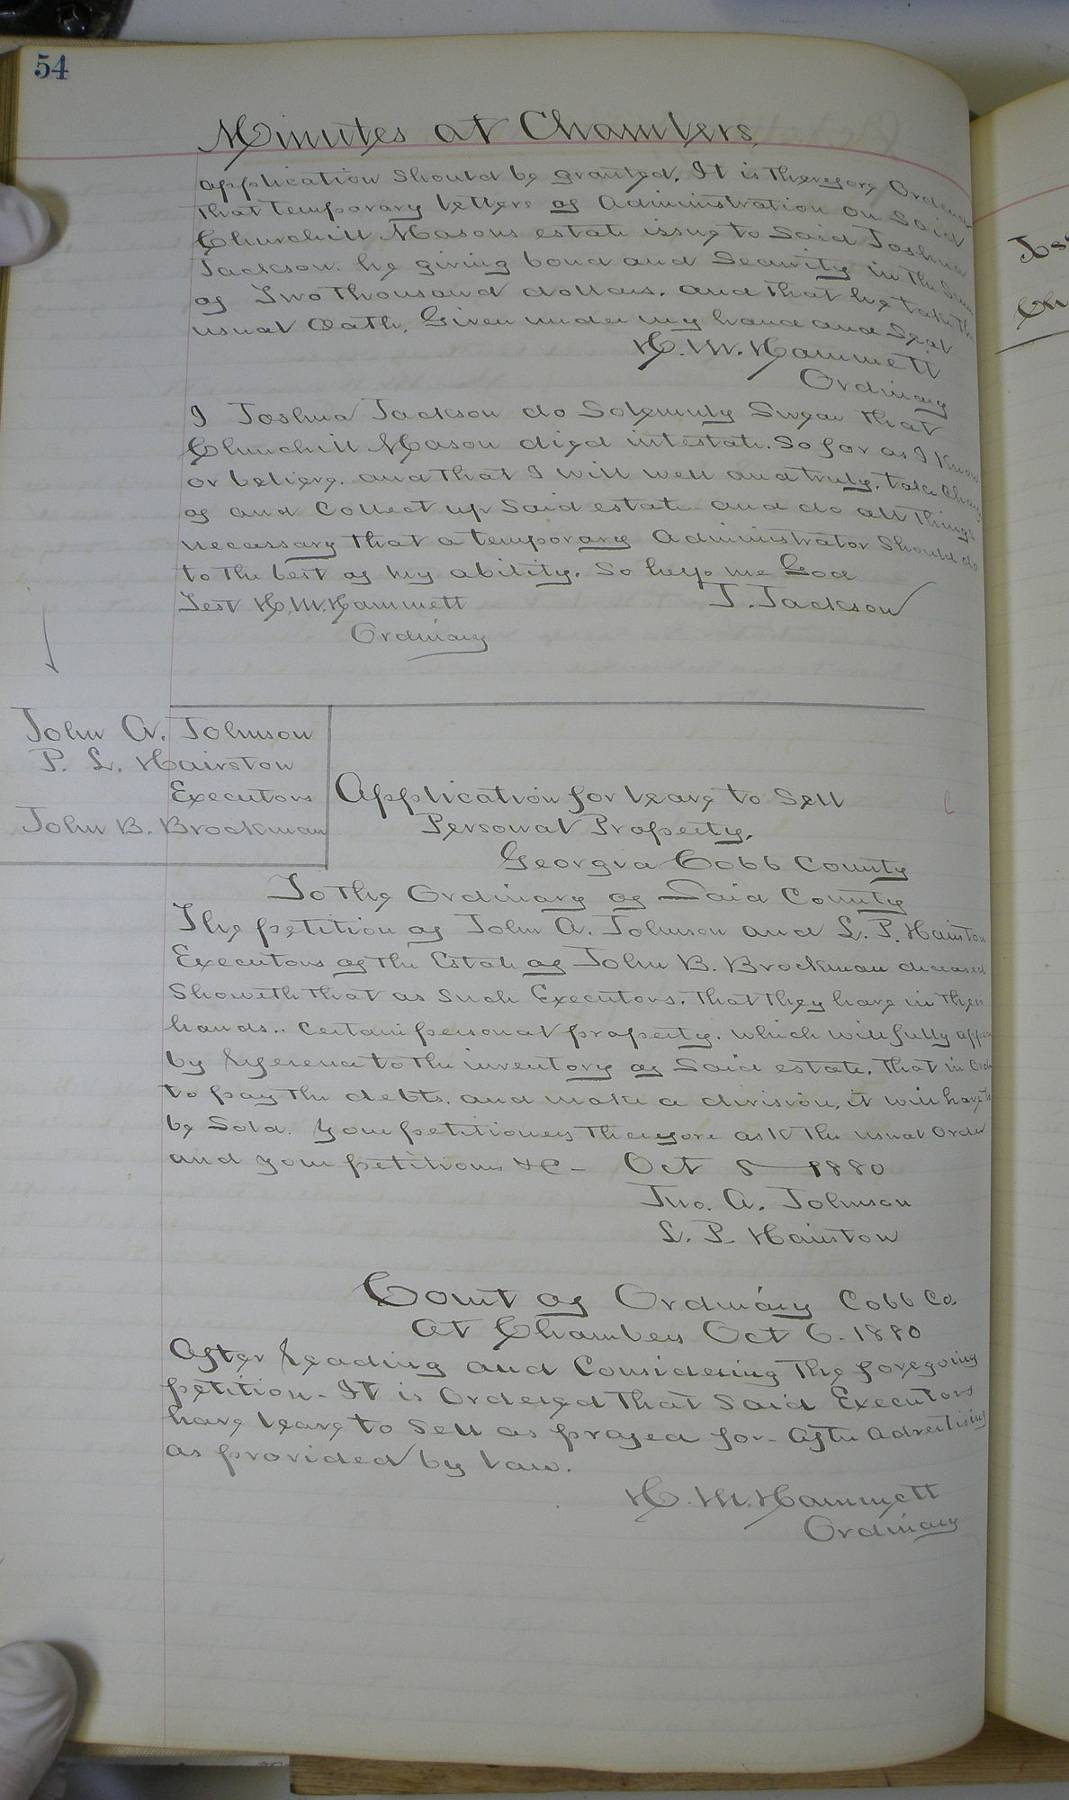 54
Minutes at Chambers
application should be granted. It is therefore Ordered
that temporary letters of Administration on Said
Churchill Masons estate issue to Said Joshua
Jackson. he giving bond and Security in the Sum
of Two thousand dollars. and that he take the
usual Oath. Given under my hand and Seal
H. M. Hammett
Ordinary
I Joshua Jackson do Solemnly Swear that
Churchill Mason died intestate. So far as I Know
or believe. and that I will well and truly. take Charge
of and Collect up Said estate and do all things
necessary that a temporary Administrator Should do
to the best of my ability. So help me God
Test H. M. Hammett J. Jackson
Ordinary
John A. Johnson
P. L. Hairston
Executors
John B. Brockman
Application for leave to Sell
Personal Property.
Georgia Cobb County
To the Ordinary of Said County
The petition of John A. Johnson and L. P. Hairston
Executors of the Estate of John B. Brockman deceased
Showeth that as Such Executors. that they have in their
hands.. Certain personal property. which will fully appear
by reference to the inventory of Said estate. that in Order
to pay the debts. and make a division, it will have to
be Sold. Your petitioners therefore ask the usual Order
and your petitioners &C- Oct 5 1880
Jno. A. Johnson
L. P. Hairston
Court of Ordinary Cobb Co.
At Chambers Oct 6. 1880
After reading and Considering the foregoing
petition - It is Ordered that Said Executors
have leave to Sell as prayed for - after advertising
as provided by law.
H. M. Hammett
Ordinary